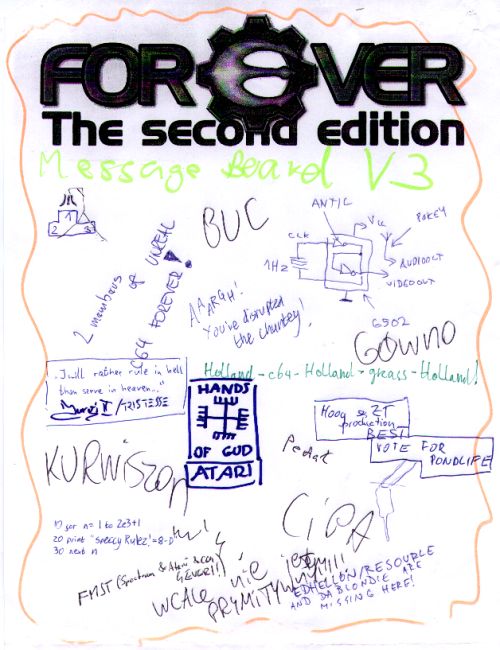 FOREVER
The second edition
Message Board V3
1
2 3
2 members of UNREAL
C64 FOREVER!
BUC
AAARGH!
You've disrupted
the chantey!
ANTIC
Vcc
POKEY
CLK
1Hz
AUDIO OUT
VIDEO OUT
6502
GOWNO
"I will rather rule in hell
than serve in heaven..."
/TRISTESSE
Holland - c64 - Holland - grass - Holland!
HANDS
OF GOD
ATARI
Hooy & ZT
production
BEST
VOTE FOR
PONDLIFE
Pedat
KURWISZON
CIPA
10 for n=1 to 2e3+1
20 print "speccy Rulez!=8-D"
30 next n
FMST (Spectrum & Atari & C64
4EVER!!)
WCALE nie jest
PRYMITYWNY!!!!
EDHELLON/RESOURCE
AND DABLONDIE ARE
MISSING HERE!